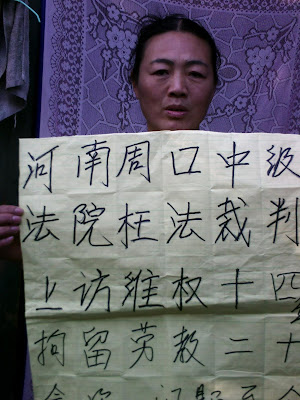 河南周口中级
法院枉法裁判
上访维权十四
拘留劳教二十